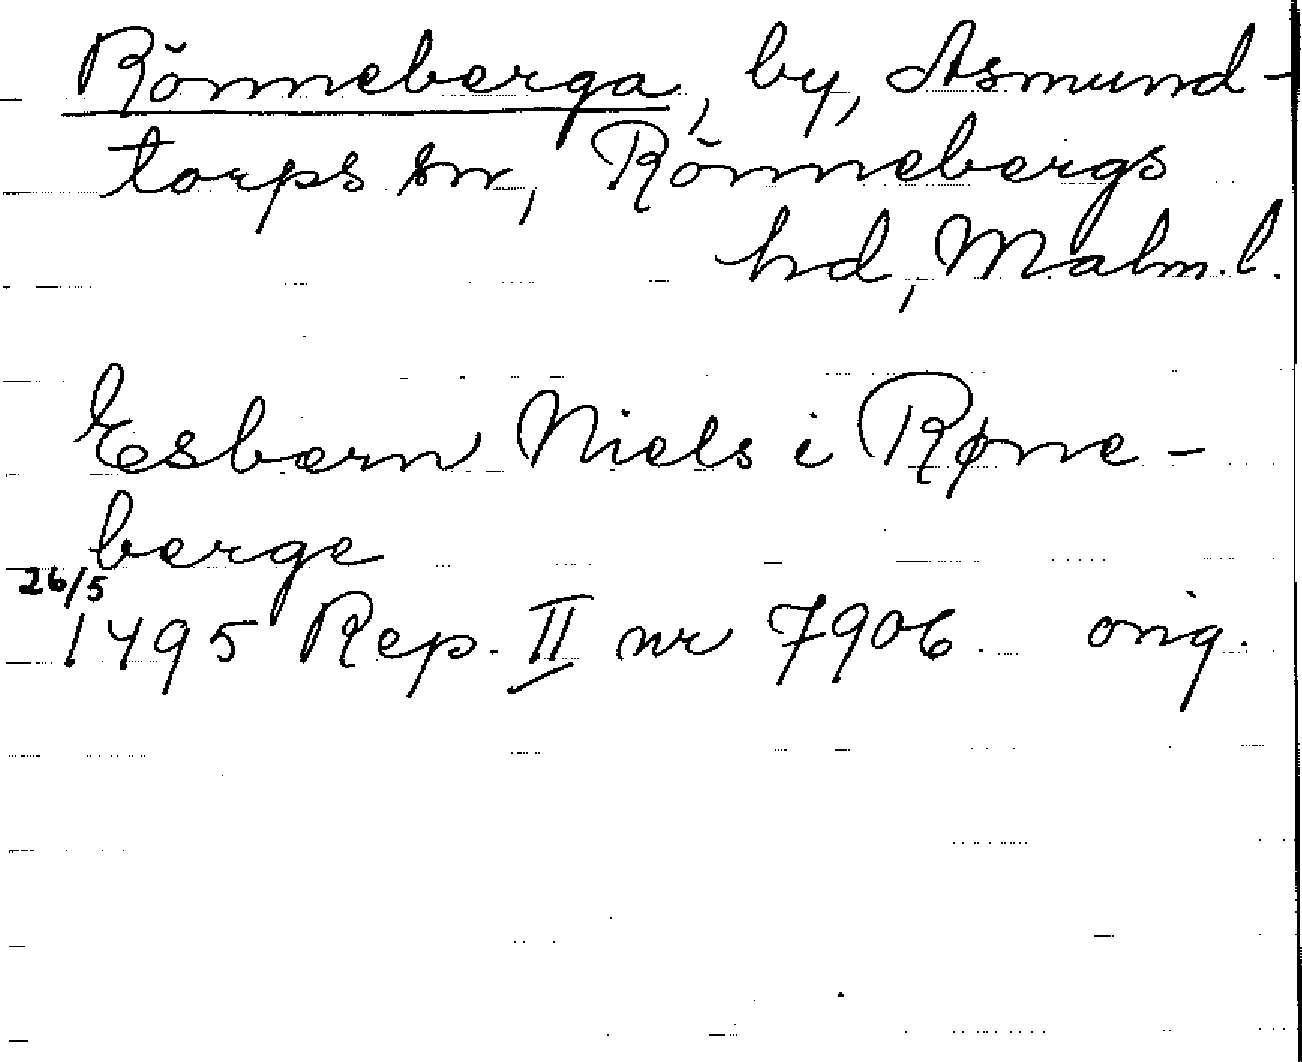 Rönneberga, by, Asmund-
torps sn, Rönnebergs
hd, Malm.l.
Esbern Niels i Røne-
berge
26/5
1495 Rep. II nr 7906 orig.